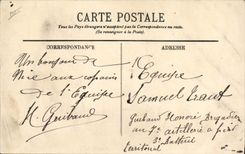 CARTE POSTALE
Tous les Pays étrangers n'acceptent pas la Correspondance au recto
(Se renseigner à la Poste)
CORRESPONDANCE
ADRESSE
Un bonjour de
Mise aux copains
de l'Equipe
H. Guibaud
L'Equipe
Samuel
Guibaud Honoré Brigadier
au 7e artillerie à pied
3e Batterie
territorial